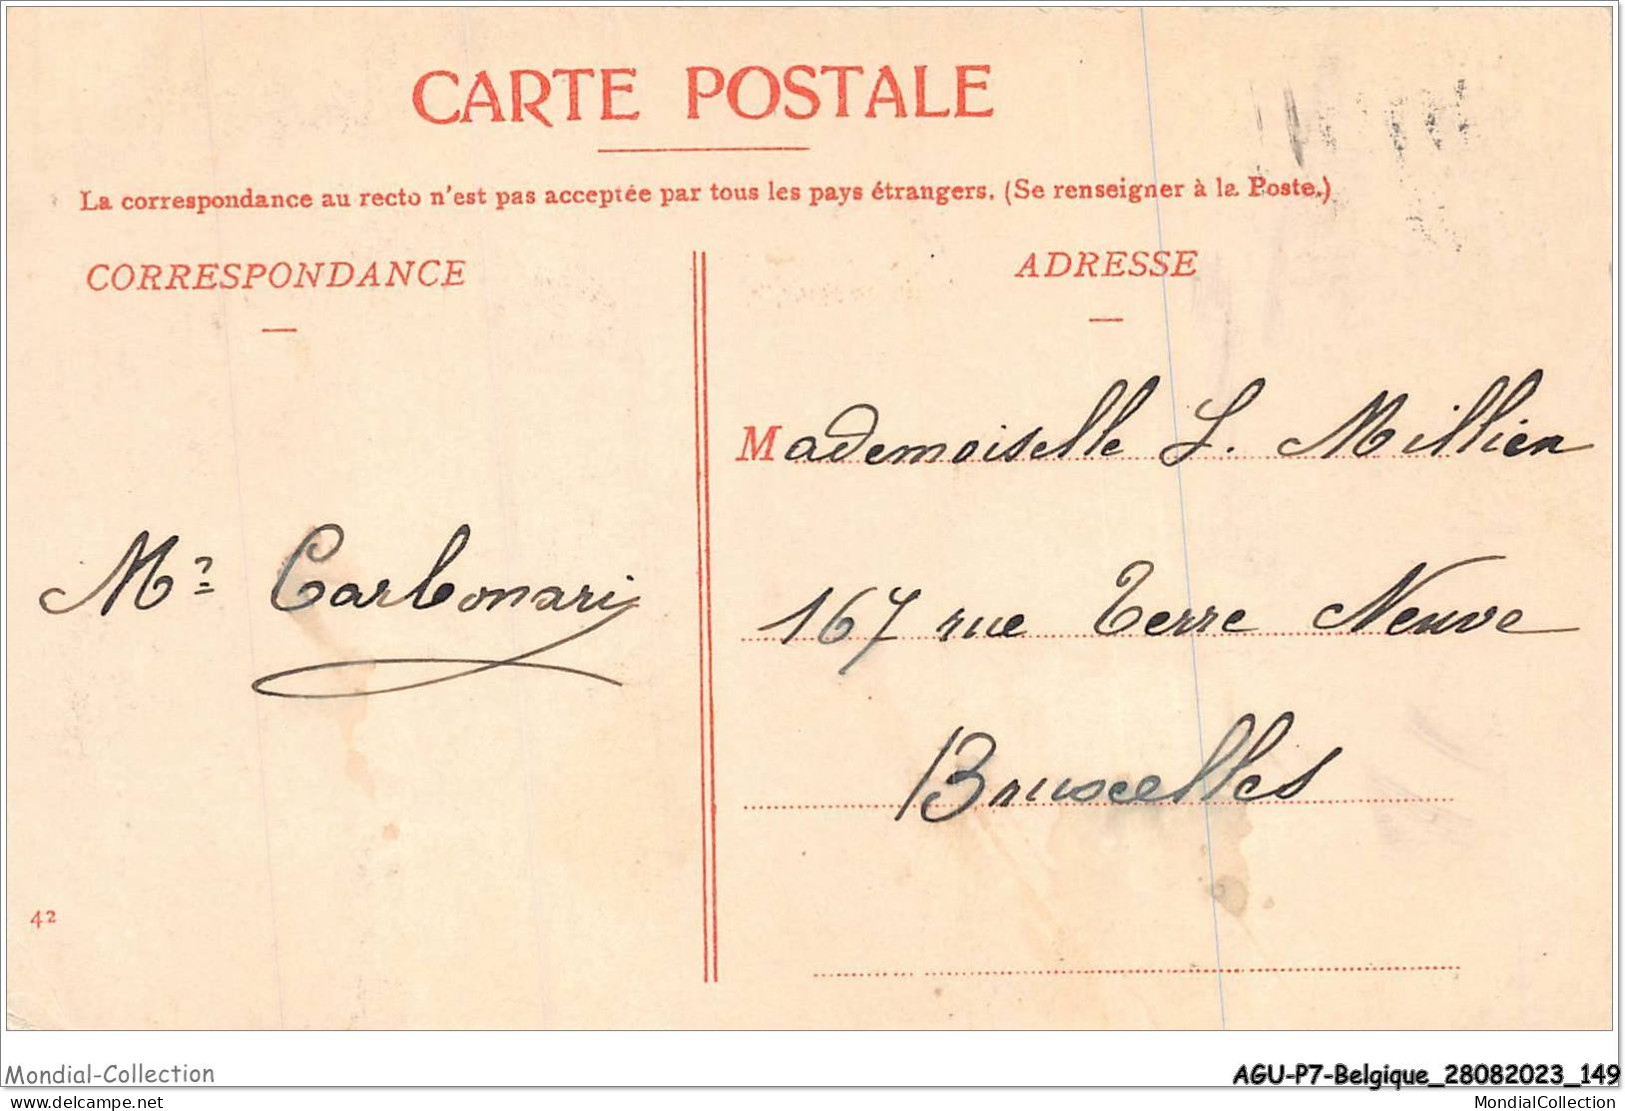 CARTE POSTALE
La correspondance au recto n'est pas acceptée par tous les pays étrangers. (Se renseigner à la Poste.)
CORRESPONDANCE
Mr Carbonari
42
ADRESSE
Mademoiselle L. Millien
167 rue Terre Neuve
Bruxelles
Mondial-Collection
AGU-P7-Belgique_28082023_149
delcampe.net
MondialCollection